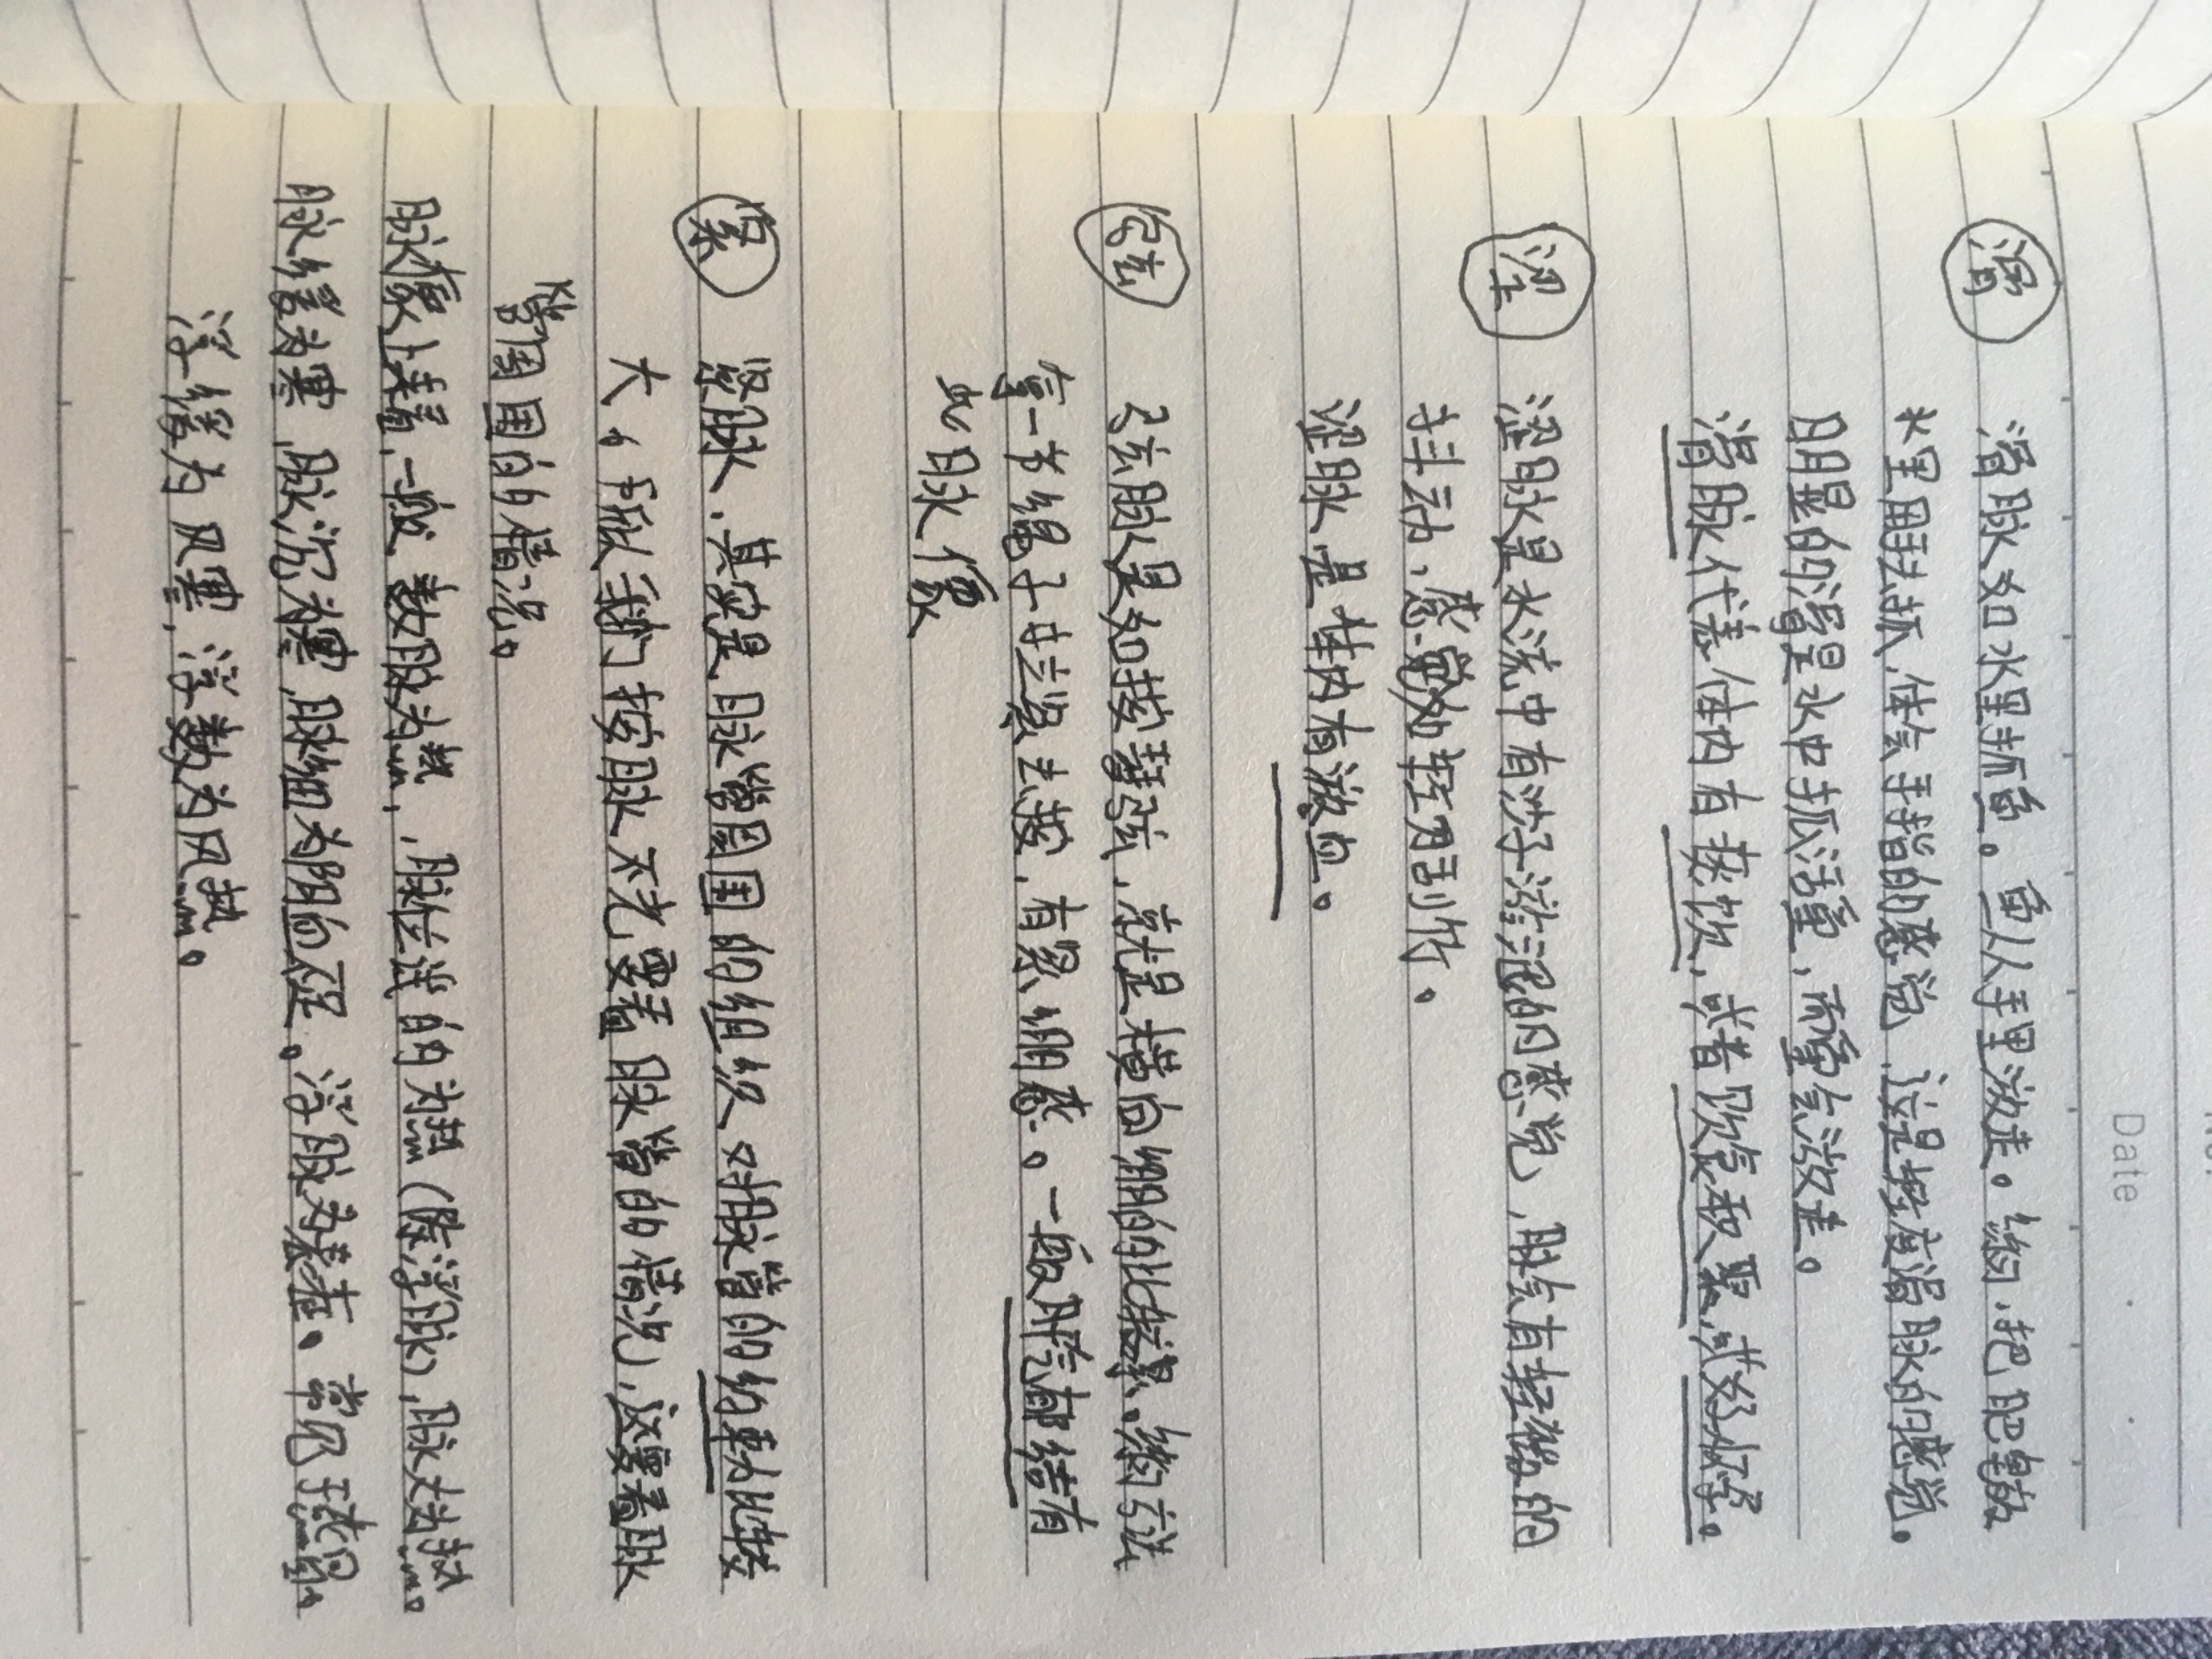 Date
滑 滑脉如水里抓鱼。鱼从手里游走。练习,把肥皂放
水里用手抓,体会手指的感觉,这是按度滑脉的感觉。
明显的滑是水中抓活鱼,而鱼会游走。
滑脉代表体内有痰饮,或者饮食积聚,或妊娠等。
涩 涩脉是水流中有沙子淤泥的感觉,脉会有轻微的
抖动,感觉如轻刀刮竹。
涩脉是体内有淤血。
弦 弦脉是如按琴弦,就是横向绷的比较紧,练习方法
拿一书绳子拉紧去按,有紧绷感。一般肝气郁结有
此脉像
紧 紧脉,其实是脉管周围的组织对脉管的约束比较
大,所以我们按脉不光要看脉管的情况,还要看脉
管周围的情况。
脉像上来看,一般数脉为热,脉长的为热(除浮脉),脉大为热。
脉紧为寒,脉沉为寒,脉细为阴血不足。浮脉为表证。常见于感冒。
浮缓为风寒,浮数为风热。